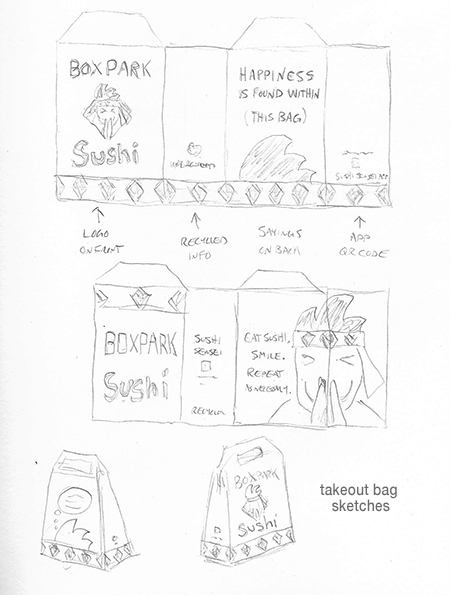 BOXPARK
Sushi
HAPPINESS
IS FOUND WITHIN
(THIS BAG)
LOGO
ON FRONT
RECYCLED
INFO
SAYINGS
ON BACK
APP
QR CODE
BOXPARK
Sushi
SUSHI
SENSEI
RECYCLED
EAT SUSHI.
SMILE.
REPEAT
AS NECESSARY.
BOXPARK
Sushi
takeout bag
sketches